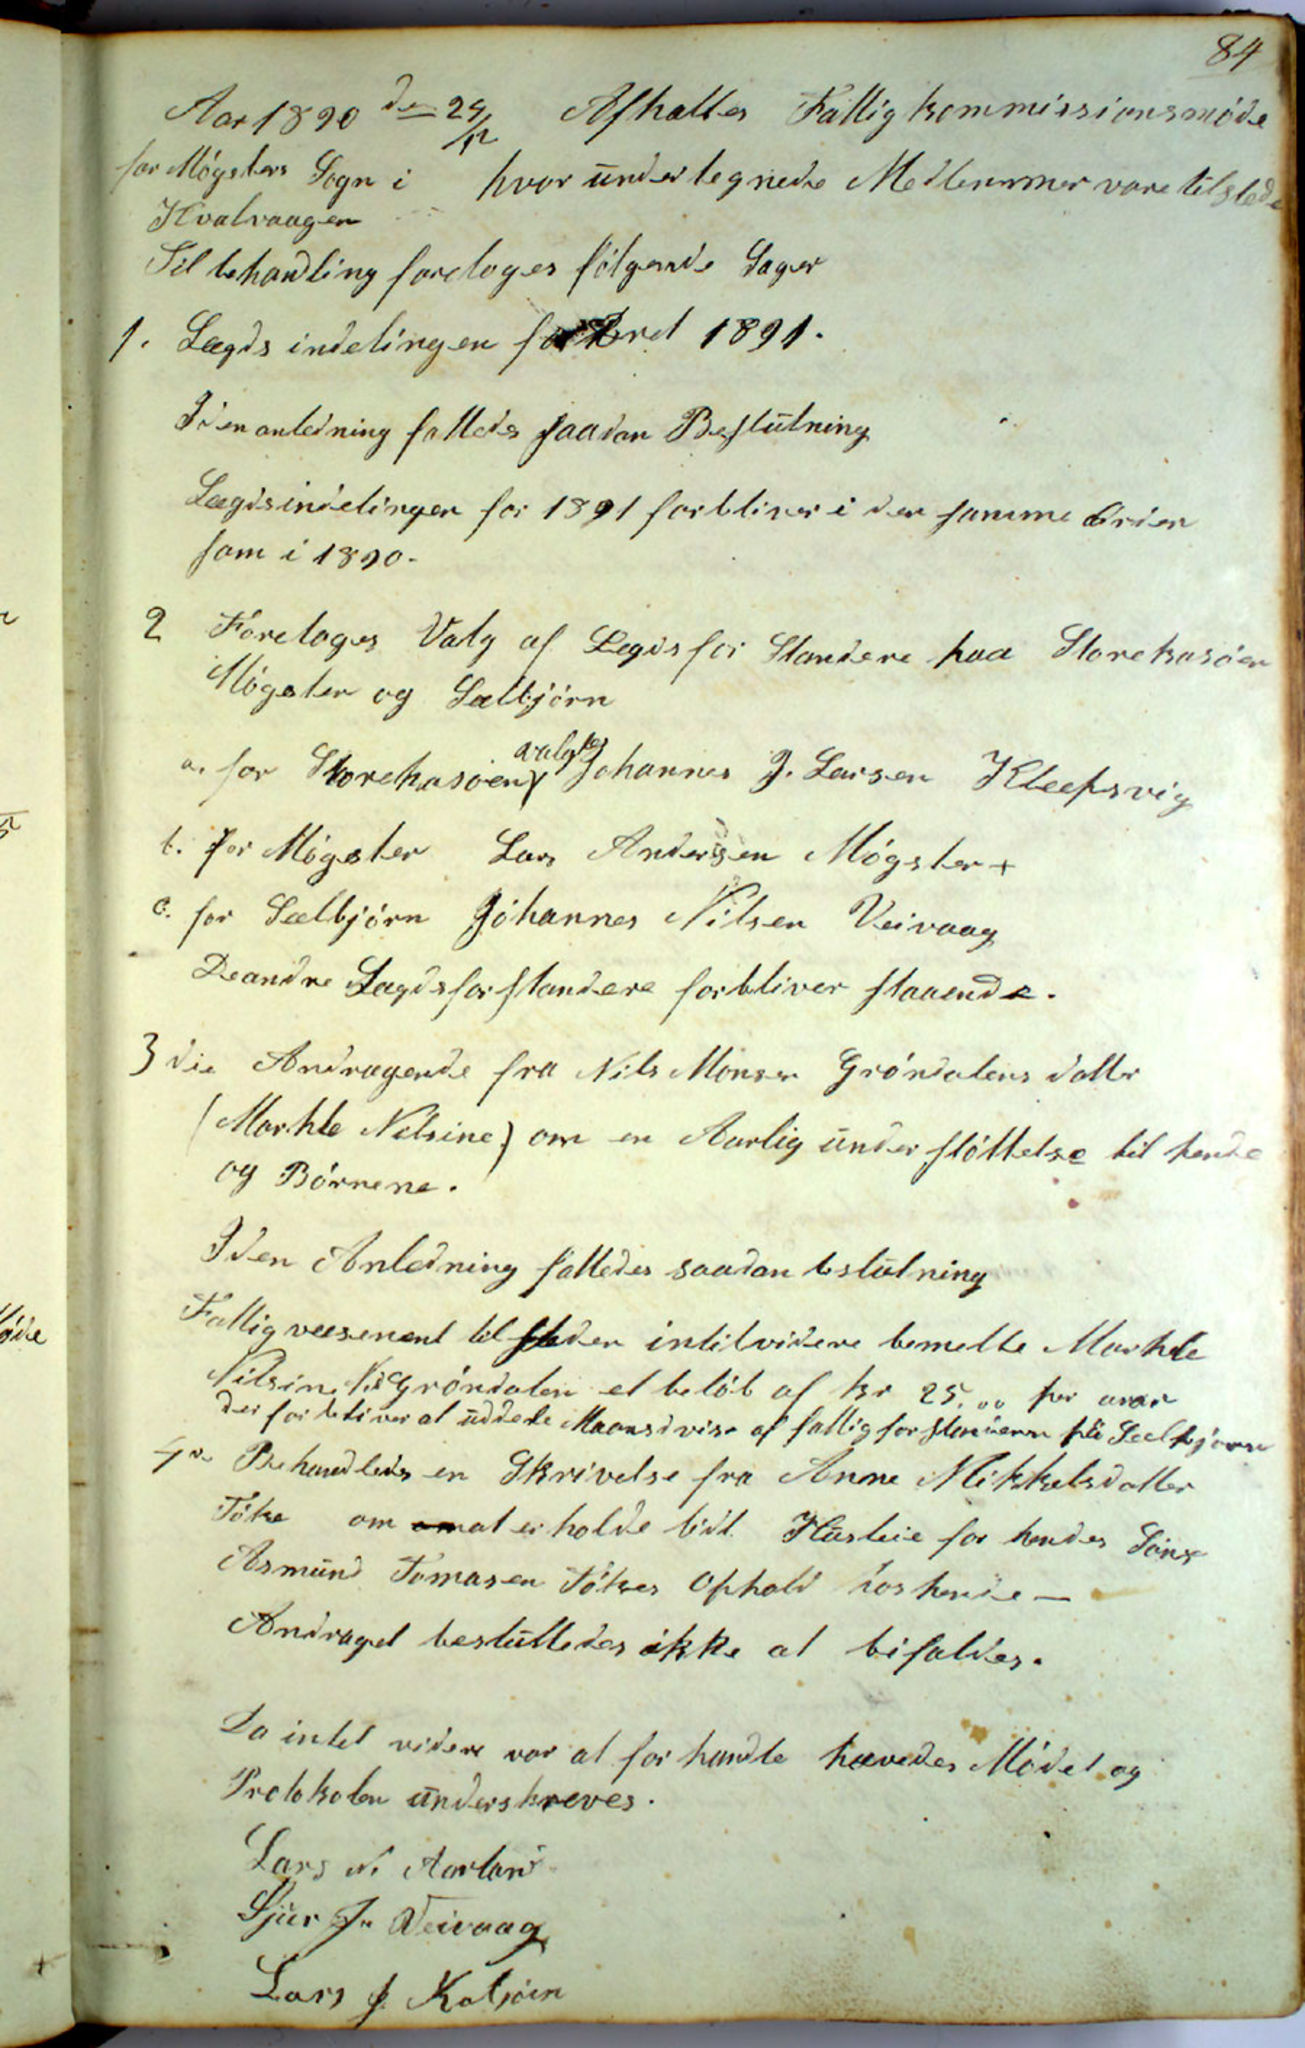 84
Aar 1890 den 29/12 Afholtes Fattigkommissionsmøde
for Møgsters Sogn i hvor undertegnede Medlemmer vare tilstede
Hvalvaagen
Til behandling foretoges følgende Sager
1. Lægdsindelingen for 1891.
I den anledning fattedes saadan Beslutning
Lægdsindelingen for 1891 forbliver i den samme orden
som i 1890.
2 Foretoges Valg af Lægdsforstandere paa Storekasøen
Møgster og Sælbjørn
a. for Storekasøen valgtes Johannes J. Larsen Kleepsvig
b. for Møgster Lars Andersen Møgster +
c. for Sælbjørn Johannes Nilsen Veivaag
De andre Lægdsforstandere forbliver staaende.
3die Andragende fra Nils Monsen Grøndalens datter
(Marthe Nilsine) om en Aarlig understøttelse til hende
og Børnene.
I den Anledning fattedes saadan beslutning
Fattigvæsenent tilsteder intilvidere bemelte Marthe
Nilsine Grøndalen et beløb af kr 25,00 per aar
der forbliver at uddele Maanedvise af fattigforstanderen på Sælbjørn
4de Behandledes en Skrivelse fra Anne Mikkelsdatter
Føkse om at erholde lidt Husleie for hendes Søns
Asmund Tomasen Føkses Ophold hos hende —
Andraget besluttedes ikke at bifaldes.
Da intet videre var at forhandle hævedes Mødet og
Protokolen underskreves.
Lars N. Aarland
Sjur J. Veivaag
Lars J Kalsøin
øde